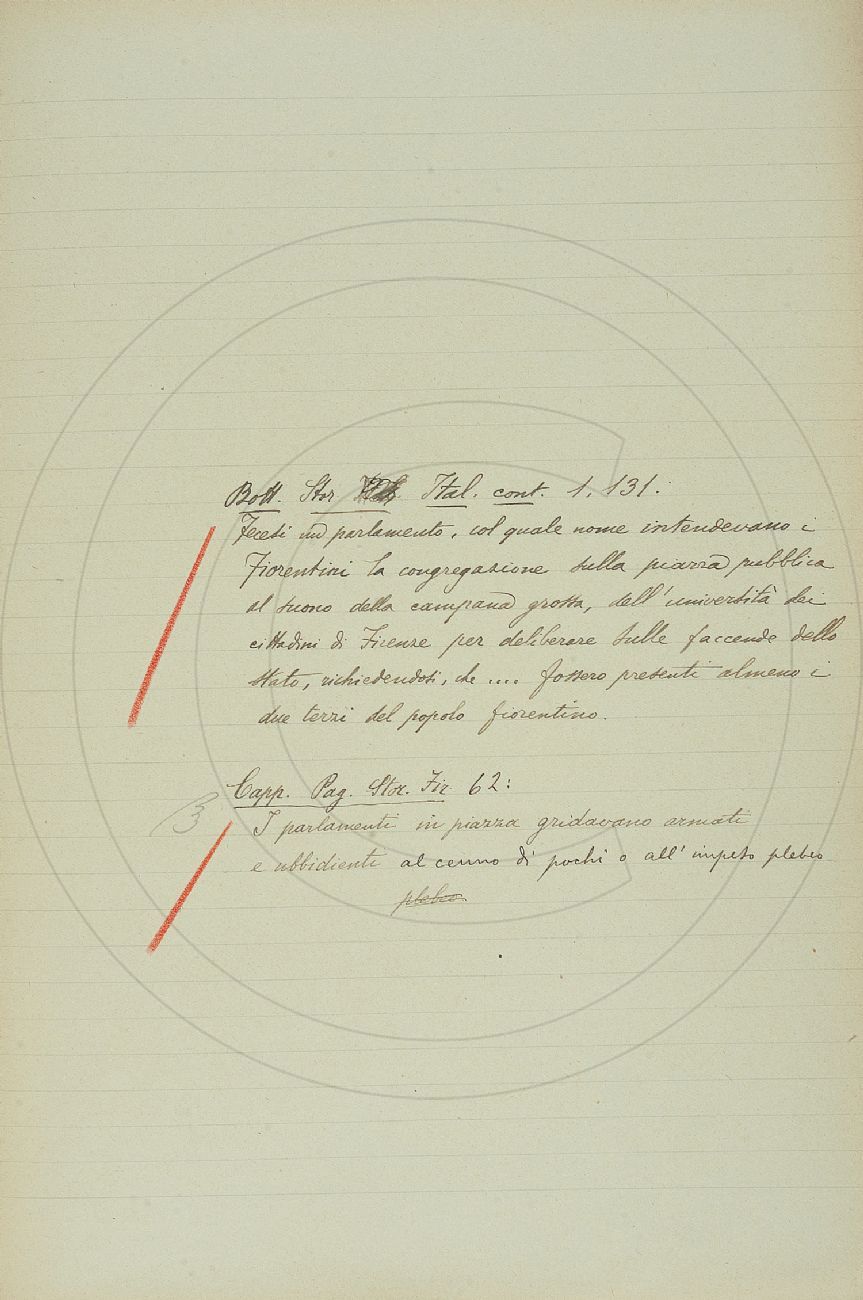 Bott. Stor. Ital. cont. 1. 131:
Fecesi un parlamento, col quale nome intendevano i
Fiorentini la congregazione sulla piazza pubblica
al suono della campana grossa, dell'università dei
cittadini di Firenze per deliberare sulle faccende dello
stato, richiedendosi, che .... fossero presenti almeno i
due terzi del popolo fiorentino.
Capp. Pag. Stor. Fir 62:
I parlamenti in piazza gridavano armati
e ubbidienti al cenno di pochi o all'impeto plebeo
plebeo.